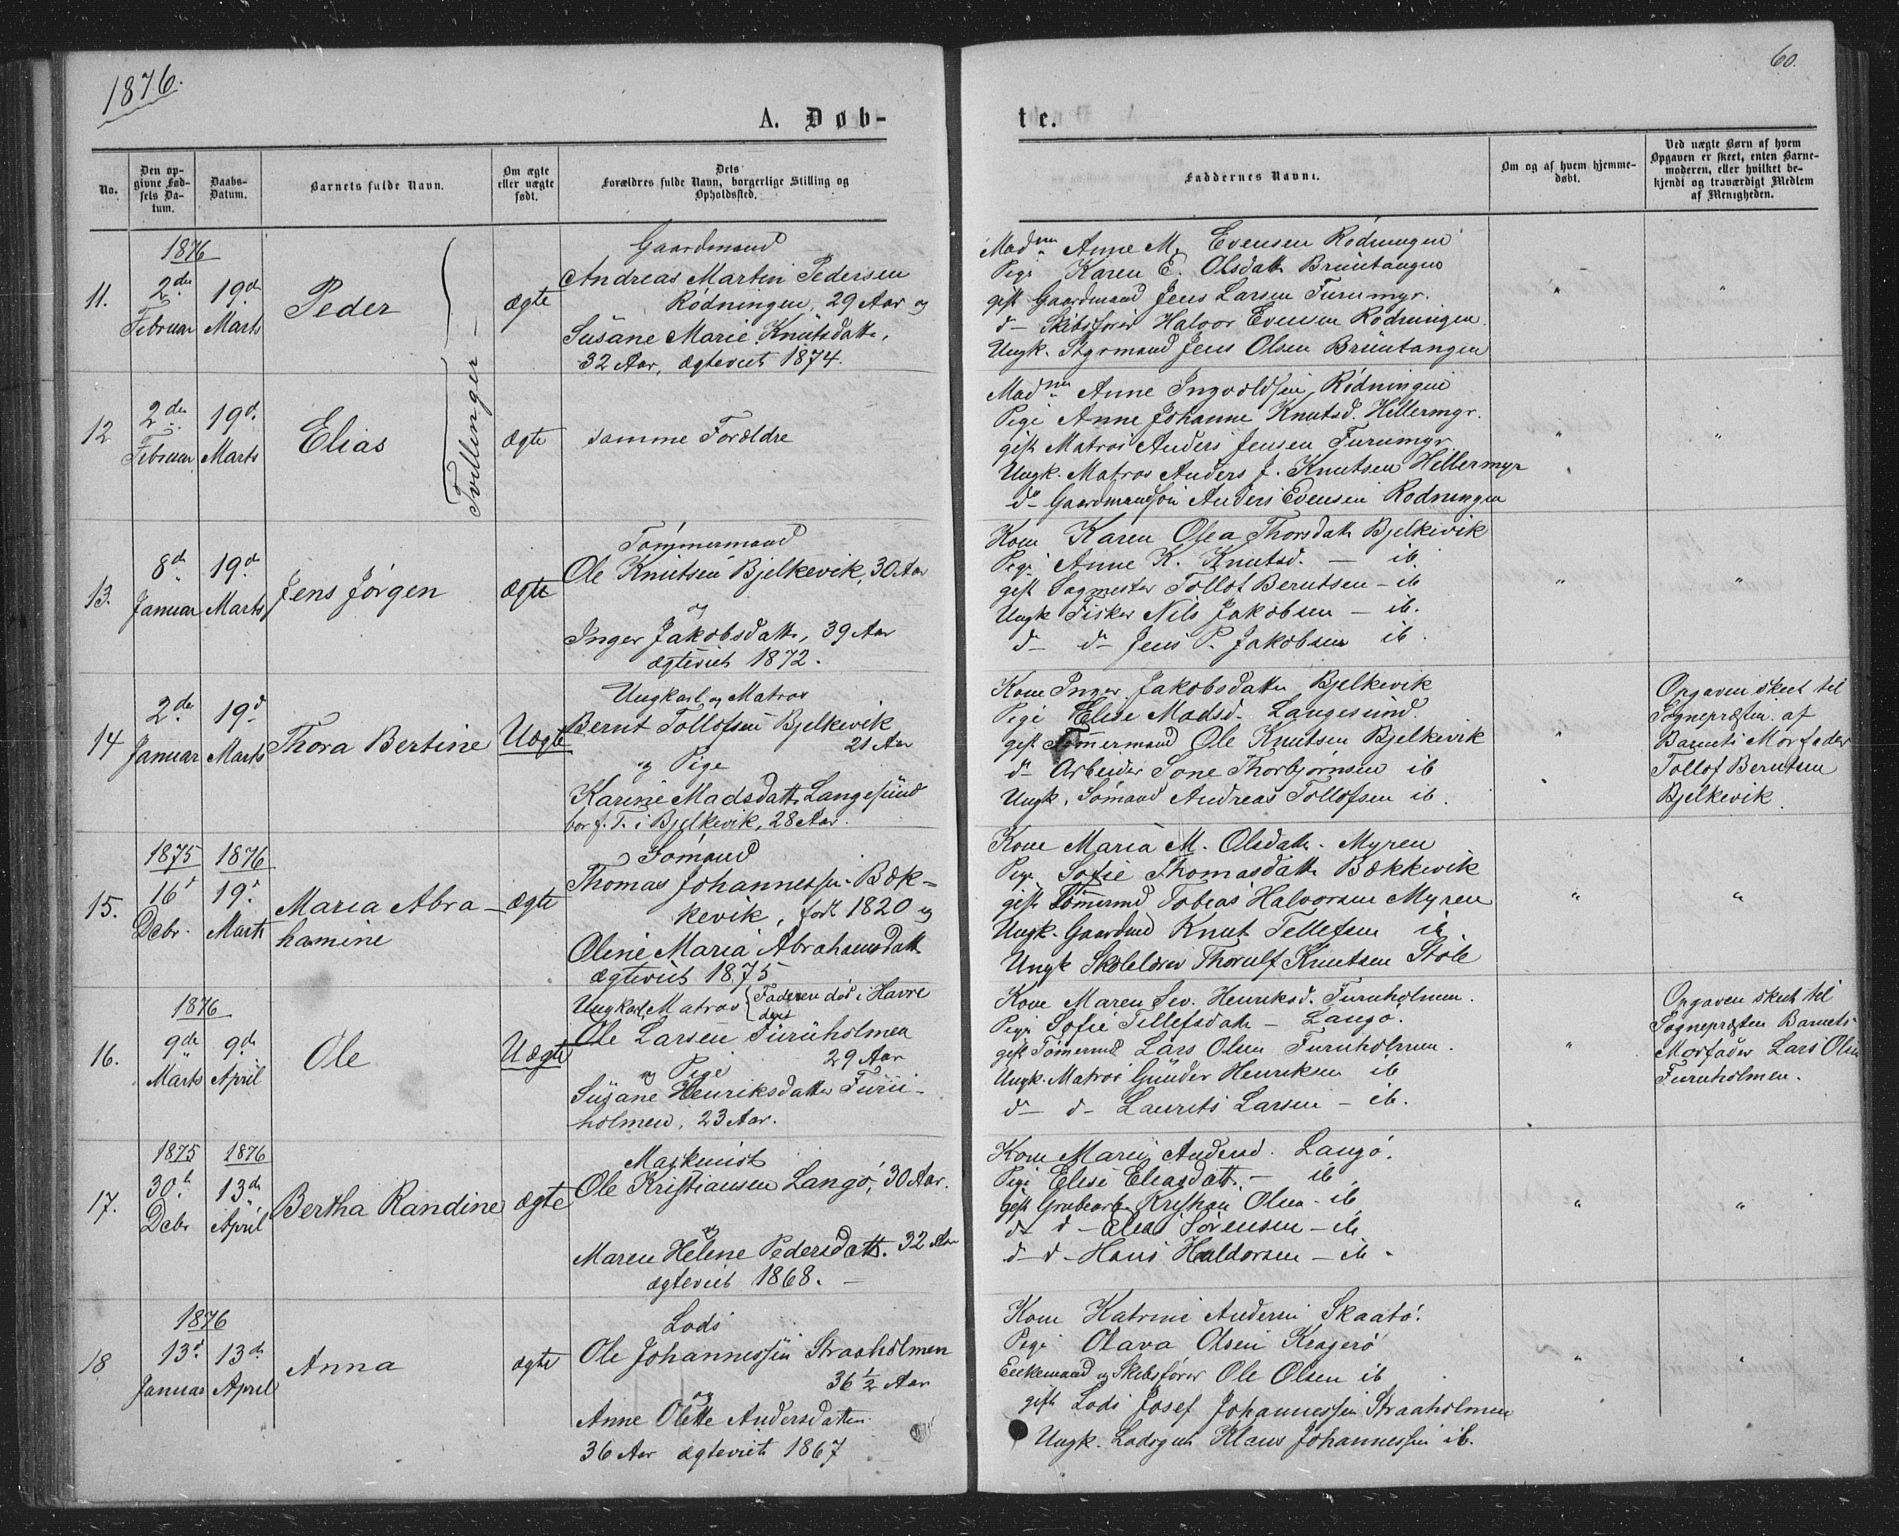 1876.
60.
A. Døb-
te.
No.
Den op-
givne Fød-
sels Da-
tum.
Daabs-
Datum.
Barnets fulde Navn.
Om ægte
eller uægte
født.
Dets
Forældres fulde Navn, borgerlige Stilling og
Opholdssted.
Faddernes Navne.
Om og af hvem hjemme-
døbt.
Ved uægte Børn af hvem
Opgaven er skeet, enten Barne-
moderen, eller hvilket be-
kjendt og troværdigt Medlem
af Menigheden.
1876
11.
2den
Februar
19d
Marts
Peder
Tvillinger
ægte
Gaardmand
Andreas Martin Pedersen
Rødningen, 29 Aar og
Susane Marie Knutsdatt.
32 Aar, ægteviet 1874.
Madm Anne M. Evensen Rødningen
Pige Karen E. Olsdatt Bruntangen
gift Gaardmand Jens Larsen Furumyr.
d- Skibsfører Halvor Evensen Rødningen
Ungk. Styrmand Jens Olsen Bruntangen
"
"
12
2den
Februar
19d
Marts
Elias
ægte
samme Forældre
Madm Anne Ingvoldsen, Rødningen
Pige Anne Johanne Knutsd. Hellermyr.
gift Matros Anders Jensen Furumyr
Ungk. Matros Anders J. Knutsen Hellermyr
do Gaardmandsøn Anders Evensen Rødningen
"
"
13.
8d
Januar
19d
Marts
Jens Jørgen
ægte
Tømmermand
Ole Knutsen Bjelkevik, 30 Aar
og
Inger Jakobsdatt, 39 Aar
ægteviet 1872.
Kone Karen Olea Thorsdatt Bjelkevik
Pige Anne K. Knutsd. - ib
gift Sagmester Tollof Berntsen - ib
Ungk Fisker Nils Jakobsen - ib.
d- d- Jens P. Jakobsen ib.
"
"
14
2de
Januar
19d
Marts
Thora Bertine
Uægte
Ungkarl og Matros
Bernt Tollofsen Bjelkevik
21 Aar
og Pige
Karine Madsdatt Langesund
bor f. T. i Bjelkevik, 28 Aar.
Kone Inger Jakobsdatt Bjelkevik
Pige Elise Madsd. Langesund.
gift Tømmermand Ole Knutsen Bjelkevik
d- Arbeider Sone Thorbjørnsen ib
Ungk. Sømand Andreas Tollofsen ib.
"
Opgaven skeet til
Sognepræsten af
Barnets Morfader
Tollof Berntsen
Bjelkevik.
1875 1876
15.
16d
Debr.
19d
Marts
Maria Abra-
hamine
ægte
Sømand
Thomas Johannessen Bæk-
kevik, født 1820 og
Oline Maria Abrahamsdatt
ægteviet 1875
Kone Maria M. Olsdatt. Myren
Pige Sofie Thomasdatt Bækkevik
gift Tømermd Tobias Halvorsen Myren
Ungk. Gaardmd Knut Tellefsen ib.
Ungk Skolelærer Thorulf Knutsen Støle
"
"
1876
16.
9de
Marts
9de
April
Ole
Uægte
Ungkarl, Matros { Faderen død i Havre
Ole Larsen Furuholmen
29 Aar
og Pige
Susane Henriksdatter Furu-
holmen, 23 Aar.
Kone Maren Sev. Henriksd. Furuholmen.
Pige Sofie Tellefsdatt - Langø.
gift Tømermd Lars Olsen Furuholmen.
Ungk. Matros Gunder Henriksen ib
d- d- Laurits Larsen - ib.
"
Opgaven skeet til
Sognepræsten Barnets
Morfader Lars Olsen
Furuholmen.
1875 1876
17.
30t
Debr
13de
April
Bertha Randine
ægte
Maskinist
Ole Kristiansen Langø, 30 Aar.
og
Maren Helene Pedersdatt. 32 Aar
ægteviet 1868.
Kone Maren Andersd. Langø.
Pige Elise Eliasdatt. - ib
gift Grubearb. Kristian Olsen - ib
d- d- Elias Sørensen - ib
d- d- Hans Haldorsen - ib.
"
"
1876
18
13d
Januar
13de
April
Anna
ægte
Lods
Ole Johannessen Straaholmen
36 1/2 Aar
og
Anne Olette Andersdatter
36 Aar ægteviet 1867
Kone Katrine Andersen Skaatø.
Pige Olava Olsen Kragerø
Enkemand og Skibsfører Ole Olsen ib
gift Lods Josef Johannessen Straaholmen
Ungk. Lodsgut Klaus Johannessen ib.
"
"